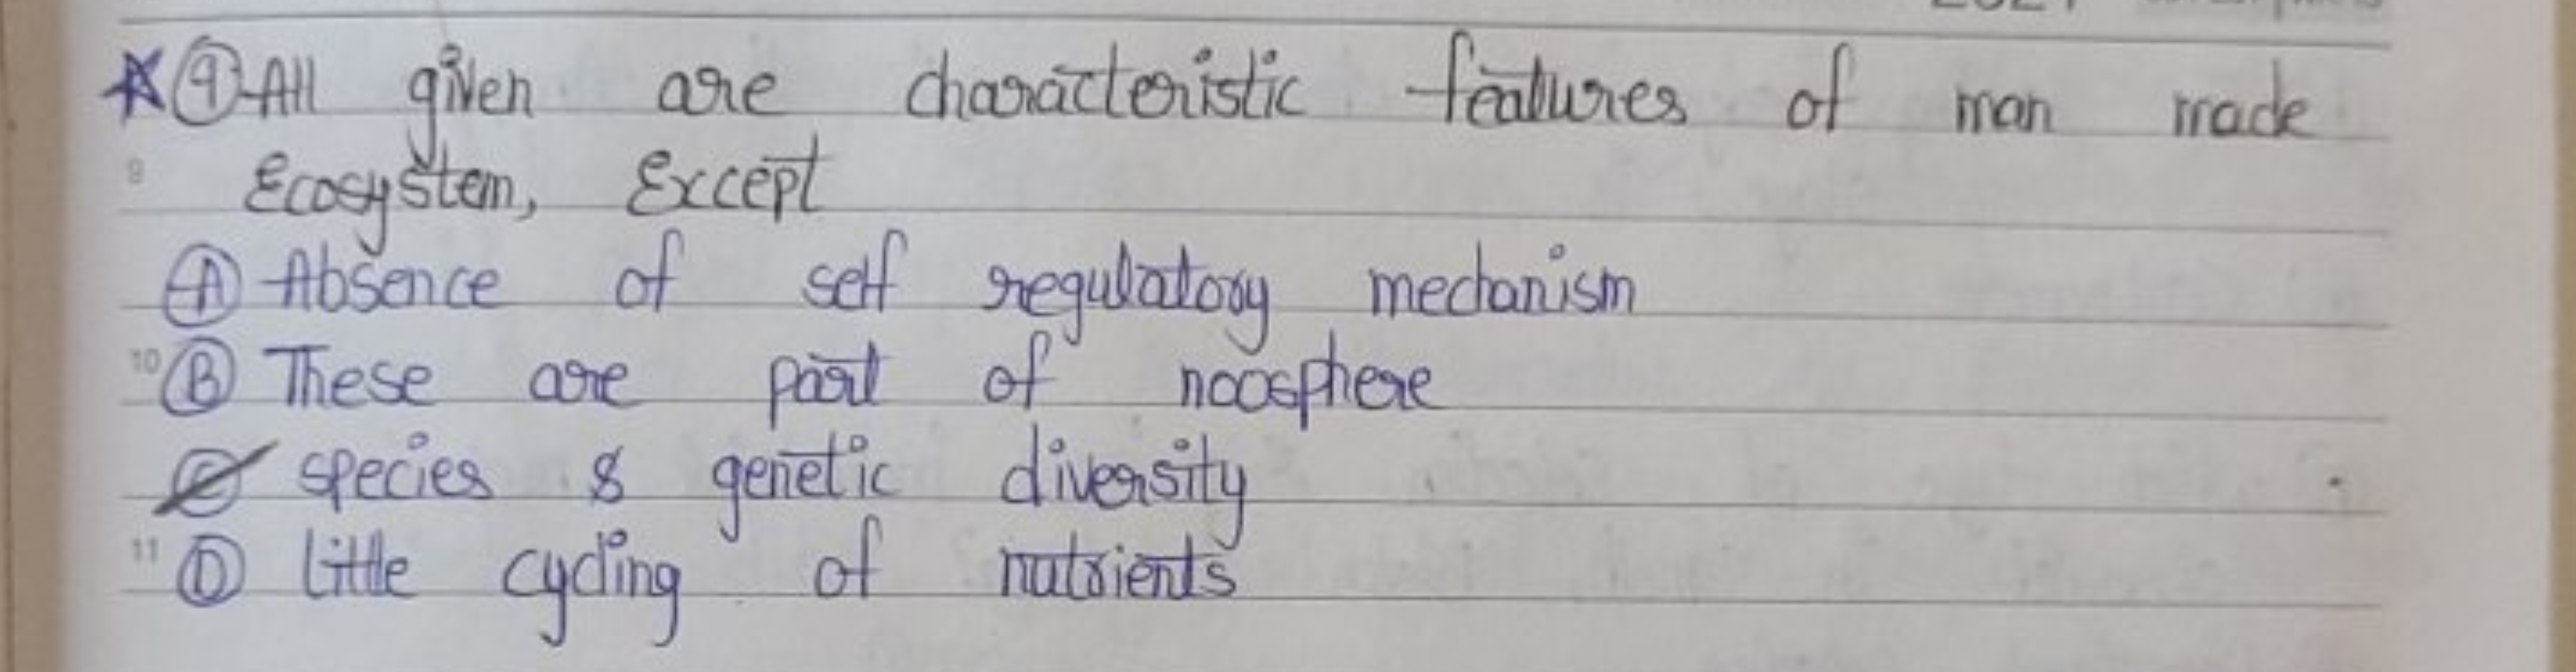 ⑨ All given are characteristic features of man made
9 Ecosystem, Except
Ⓐ Absence of self regulatory mechanism
10 Ⓑ These are part of noosphere
Ⓒ species & genetic diversity
11 Ⓓ little cycling of nutrients